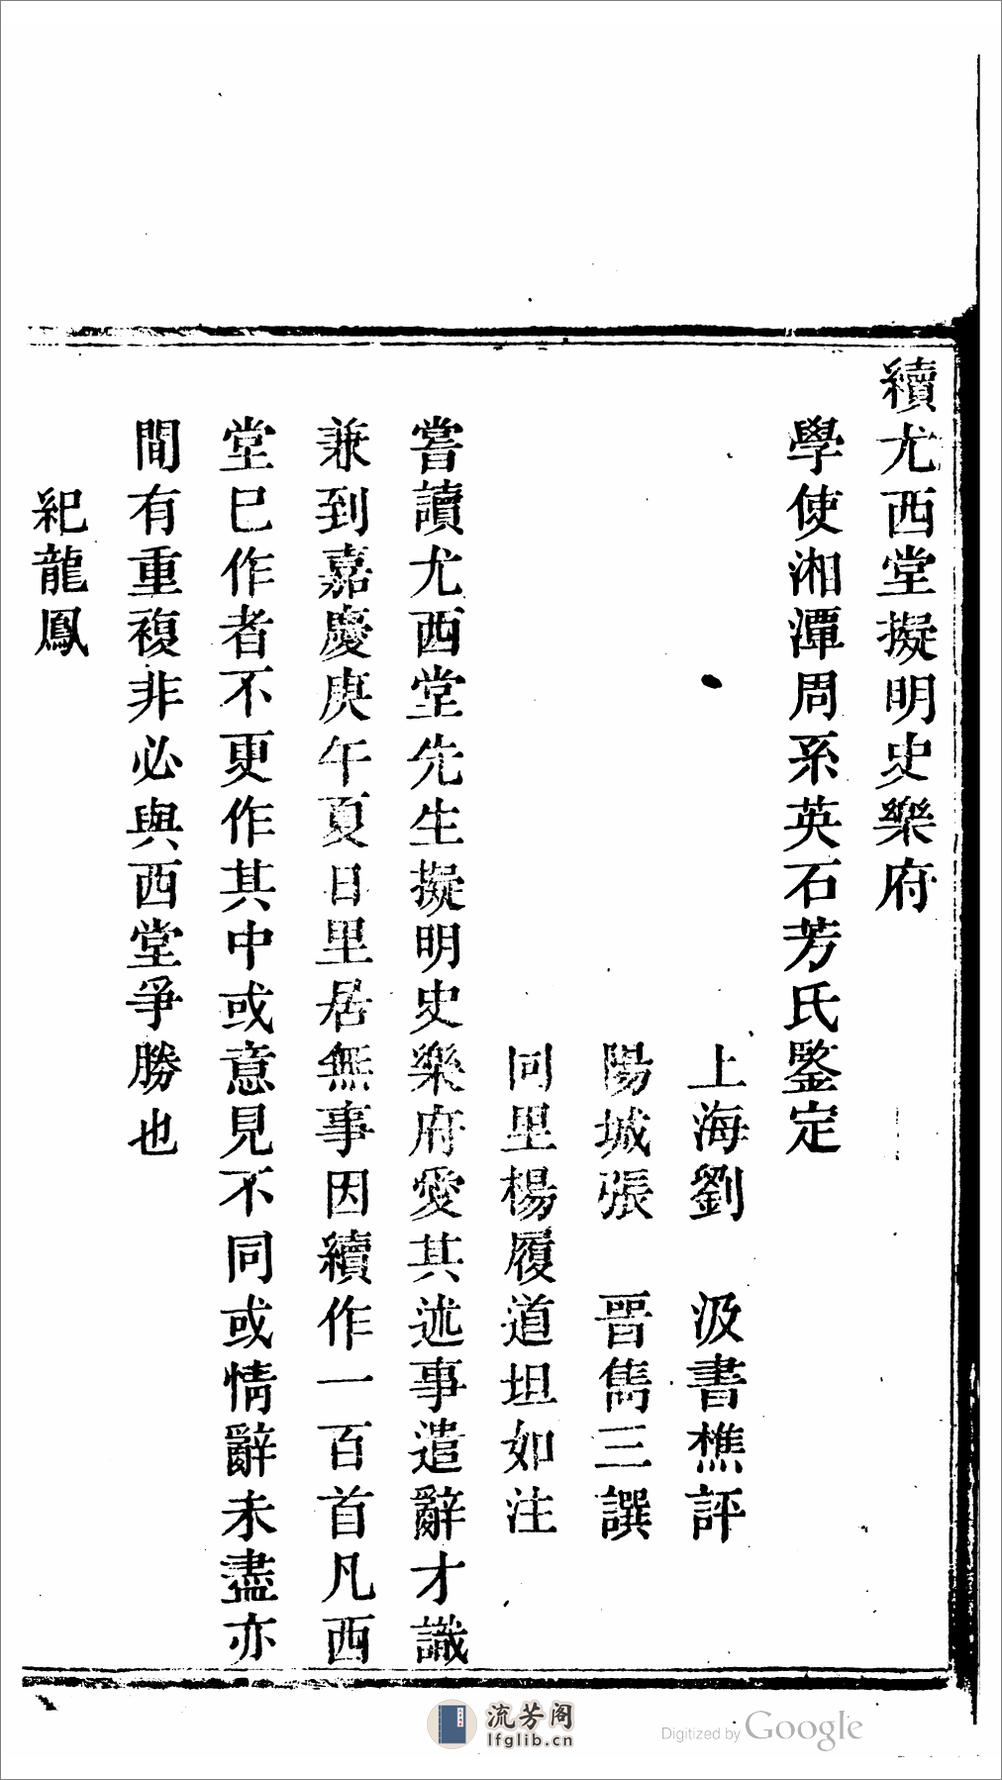 續尤西堂擬明史樂府
學使湘潭周系英石芳氏鑒定
上海劉　汲書樵評
陽城張　晋雋三譔
同里楊履道坦如注
嘗讀尤西堂先生擬明史樂府愛其述事遣辭才識
兼到嘉慶庚午夏日里居無事因續作一百首凡西
堂巳作者不更作其中或意見不同或情辭未盡亦
間有重複非必與西堂爭勝也
紀龍鳳
流芳阁
lfglib.cn
Digitized by Google